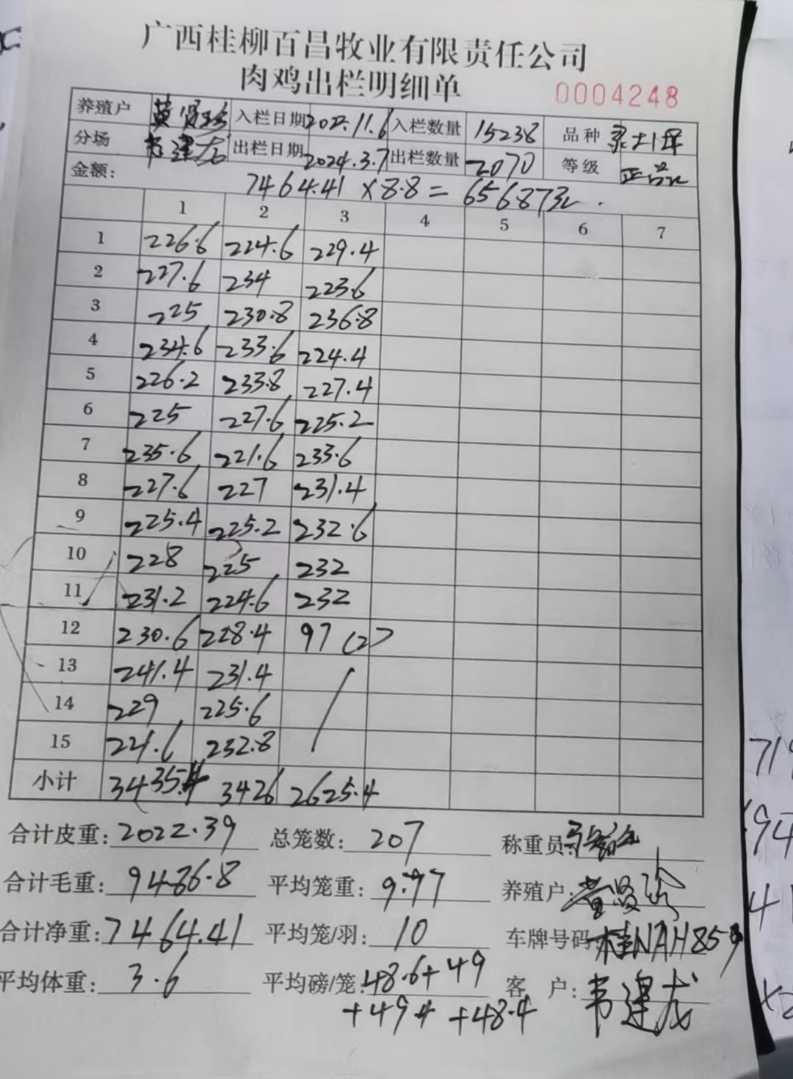 广西桂柳百昌牧业有限责任公司
肉鸡出栏明细单
0004248
养殖户 黄贤珍 入栏日期 11.6 入栏数量 15238 品种
分场 韦建龙 出栏日期 2024.3.7 出栏数量 2070 等级 正品
金额: 7464.41 ×8.8= 65687元.
1 2 3 4 5 6 7
1 226.6 224.6 229.4
2 227.6 234 223.6
3 225 230.8 236.8
4 234.6 233.6 224.4
5 226.2 233.8 227.4
6 225 227.6 225.2
7 235.6 221.6 233.6
8 227.6 227 231.4
9 225.4 225.2 232.6
10 228 225 232
11 231.2 224.6 232
12 230.6 228.4 97 (2)
13 241.4 231.4 /
14 229 225.6
15 221.6 232.8
小计 3435.4 3426 2625.4
合计皮重: 2022.39 总笼数: 207 称重员:
合计毛重: 9486.8 平均笼重: 9.77 养殖户: 黄贤珍
合计净重: 7464.41 平均笼/羽: 10 车牌号码 桂NAH859
平均体重: 3.6 平均磅/笼: 48.6+49 客户: 韦建龙
+49.4 +48.4